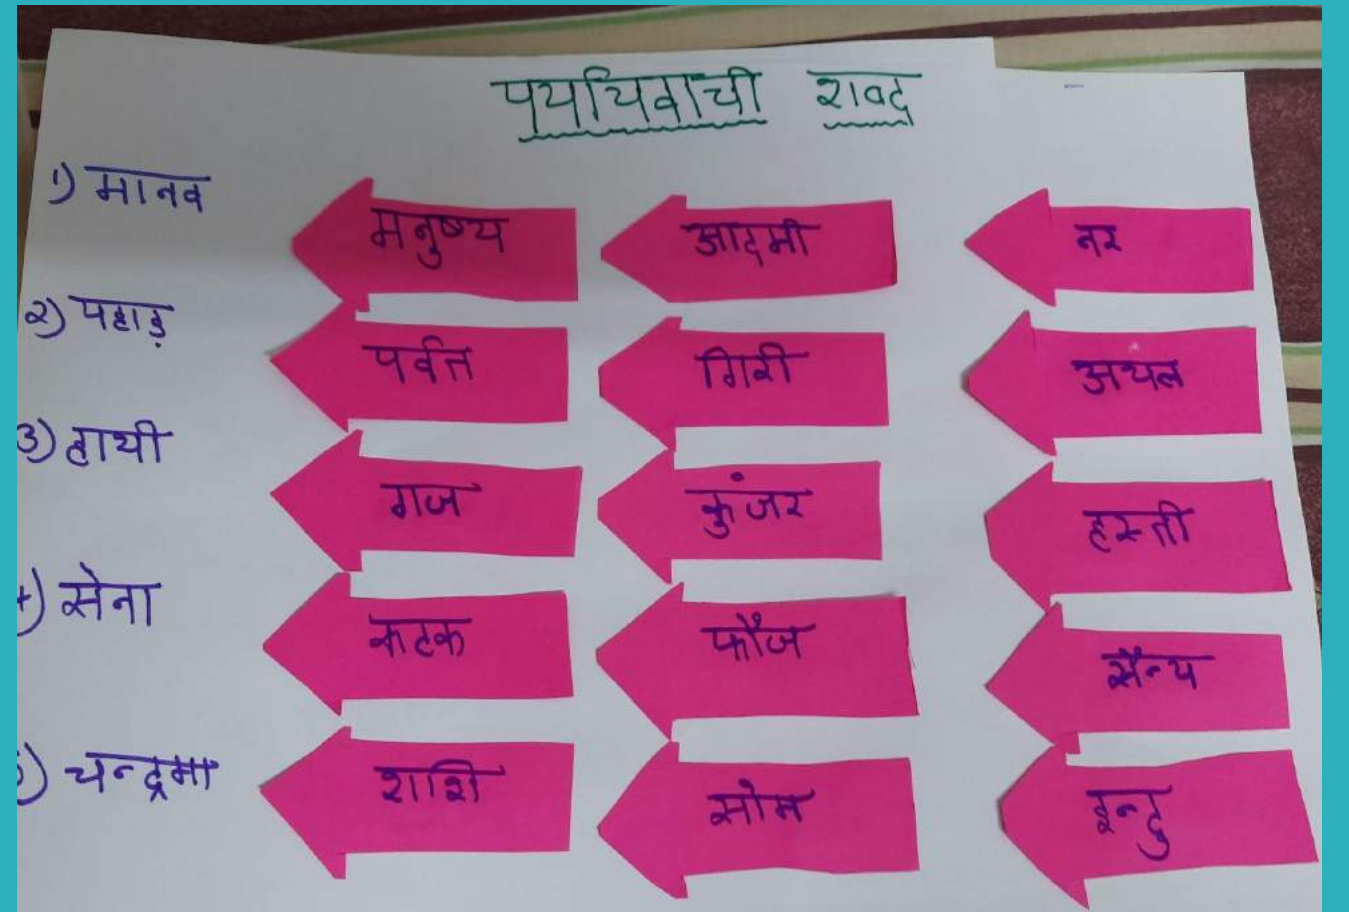 पर्यायवाची शब्द
1) मानव मनुष्य आदमी नर
२) पहाड़ पर्वत गिरी अचल
3) हाथी गज कुंजर हस्ती
4) सेना कटक फौज सैन्य
5) चन्द्रमा शशि सोम इन्दु